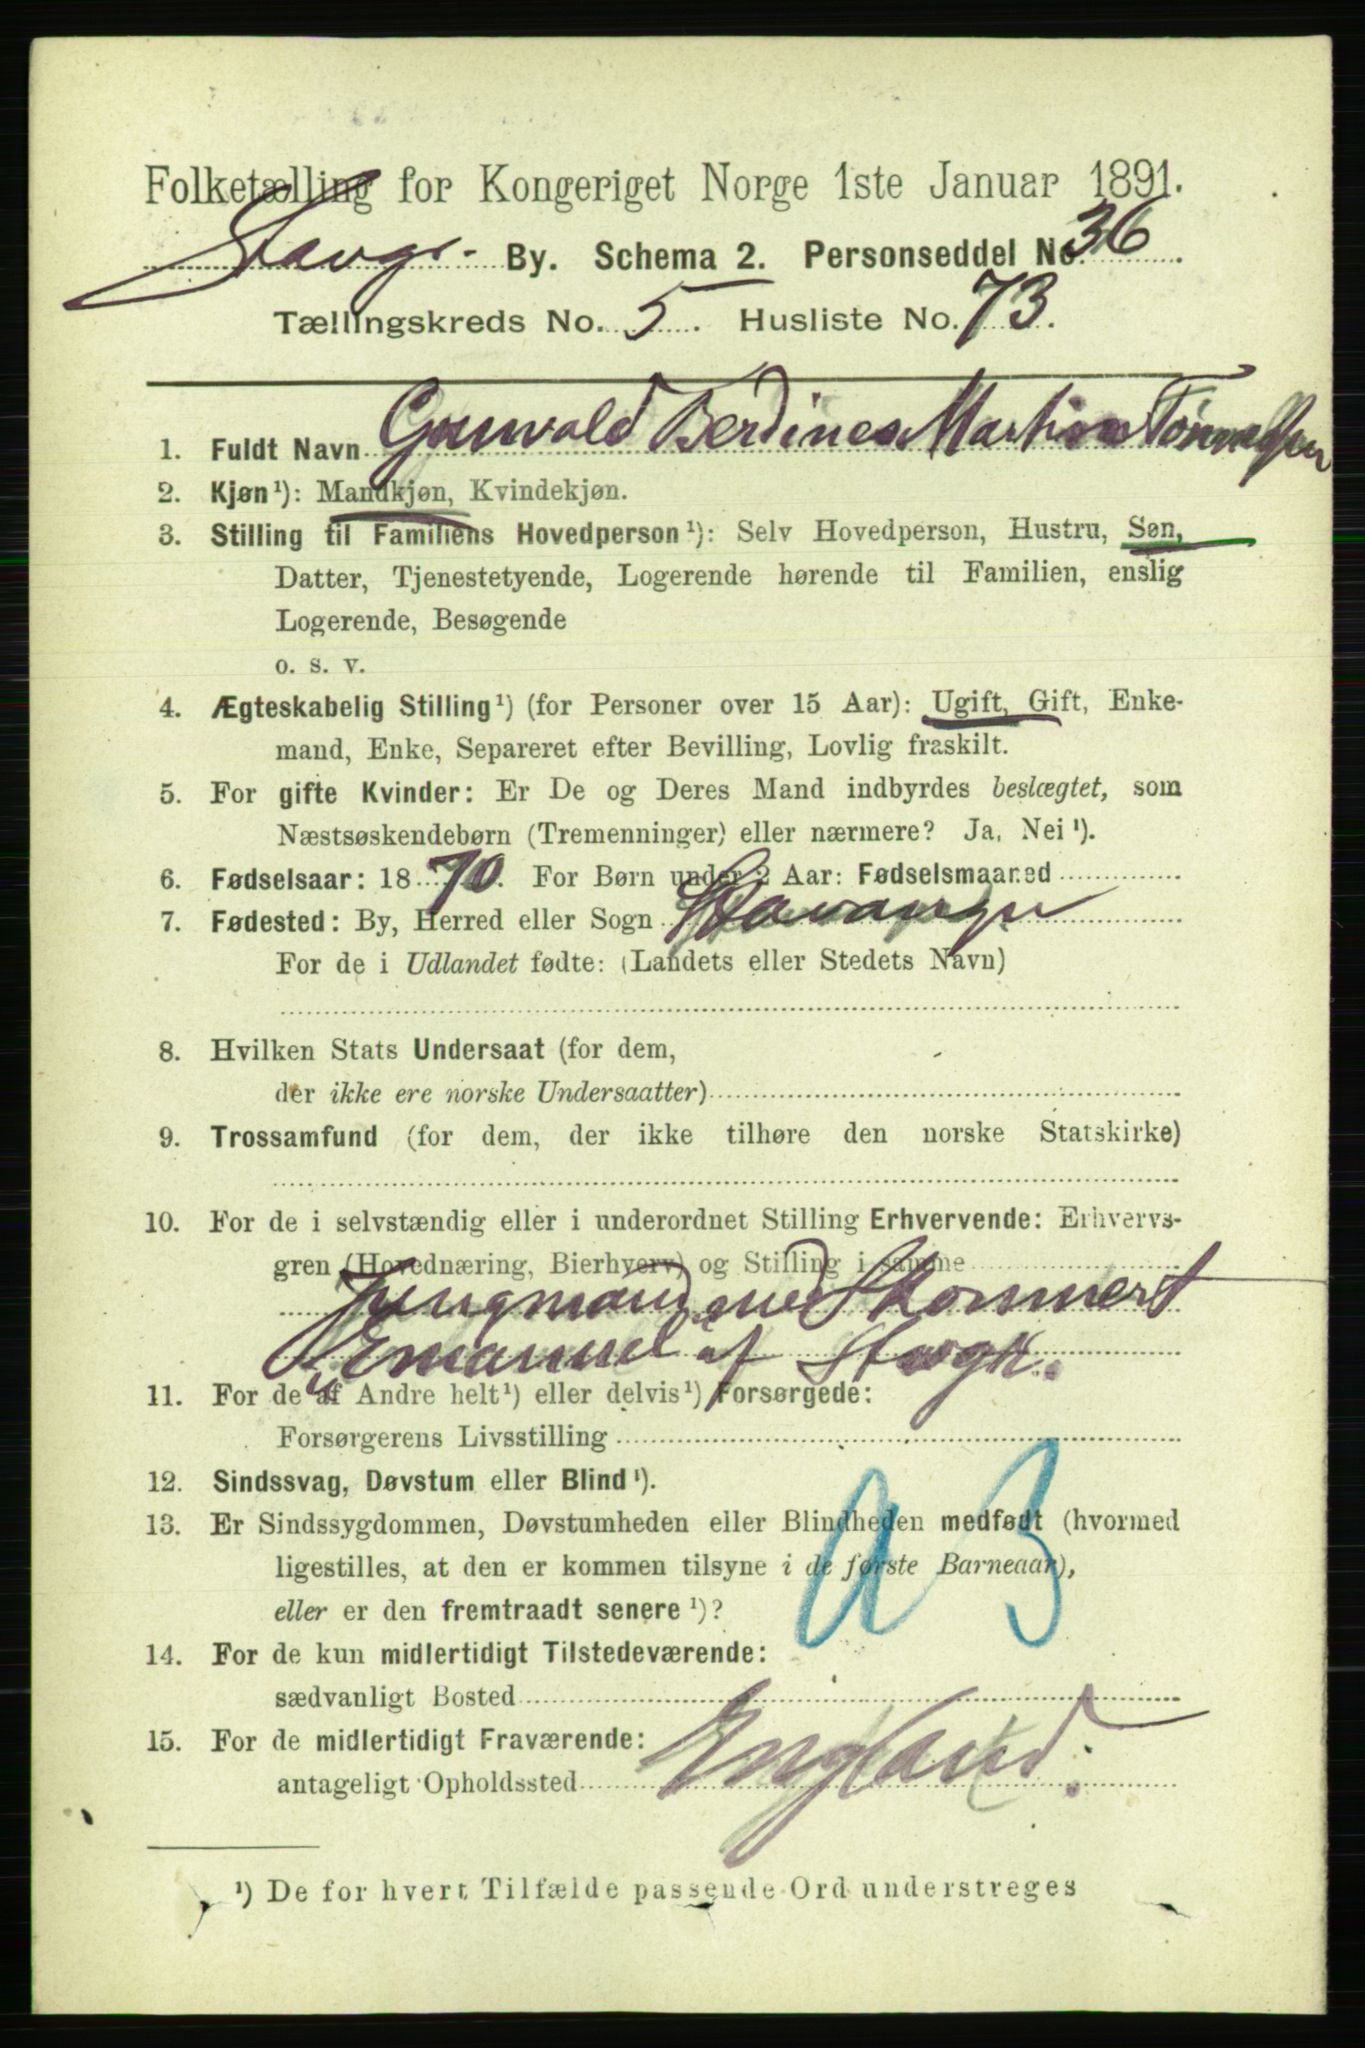 Folketælling for Kongeriget Norge 1ste Januar 1891.
Stavgr. By. Schema 2. Personseddel No 36.
Tællingskreds No. 5. Husliste No. 73.
1. Fuldt Navn Gunvald Berdines Martin Tönnessen
2. Kjøn¹): Mandkjøn, Kvindekjøn.
3. Stilling til Familiens Hovedperson¹): Selv Hovedperson, Hustru, Søn,
Datter, Tjenestetyende, Logerende hørende til Familien, enslig
Logerende, Besøgende
o. s. v.
4. Ægteskabelig Stilling¹) (for Personer over 15 Aar): Ugift, Gift, Enke-
mand, Enke, Separeret efter Bevilling, Lovlig fraskilt.
5. For gifte Kvinder: Er De og Deres Mand indbyrdes beslægtet, som
Næstsøskendebørn (Tremenninger) eller nærmere? Ja, Nei¹).
6. Fødselsaar: 1870. For Børn under 2 Aar: Fødselsmaaned
7. Fødested: By, Herred eller Sogn Stavanger
For de i Udlandet fødte: (Landets eller Stedets Navn)
8. Hvilken Stats Undersaat (for dem,
der ikke ere norske Undersaatter)
9. Trossamfund (for dem, der ikke tilhøre den norske Statskirke)
10. For de i selvstændig eller i underordnet Stilling Erhvervende: Erhvervs-
gren (Hovednæring, Bierhverv) og Stilling i samme
Jungmand med Skonnert
Emanuel af Stavgr.
11. For de af Andre helt¹) eller delvis¹) Forsørgede:
Forsørgerens Livsstilling
12. Sindssvag, Døvstum eller Blind¹).
13. Er Sindssygdommen, Døvstumheden eller Blindheden medfødt (hvormed
ligestilles, at den er kommen tilsyne i de første Barneaar),
eller er den fremtraadt senere¹)?
14. For de kun midlertidigt Tilstedeværende:
sædvanligt Bosted
15. For de midlertidigt Fraværende:
antageligt Opholdssted England.
¹) De for hvert Tilfælde passende Ord understreges